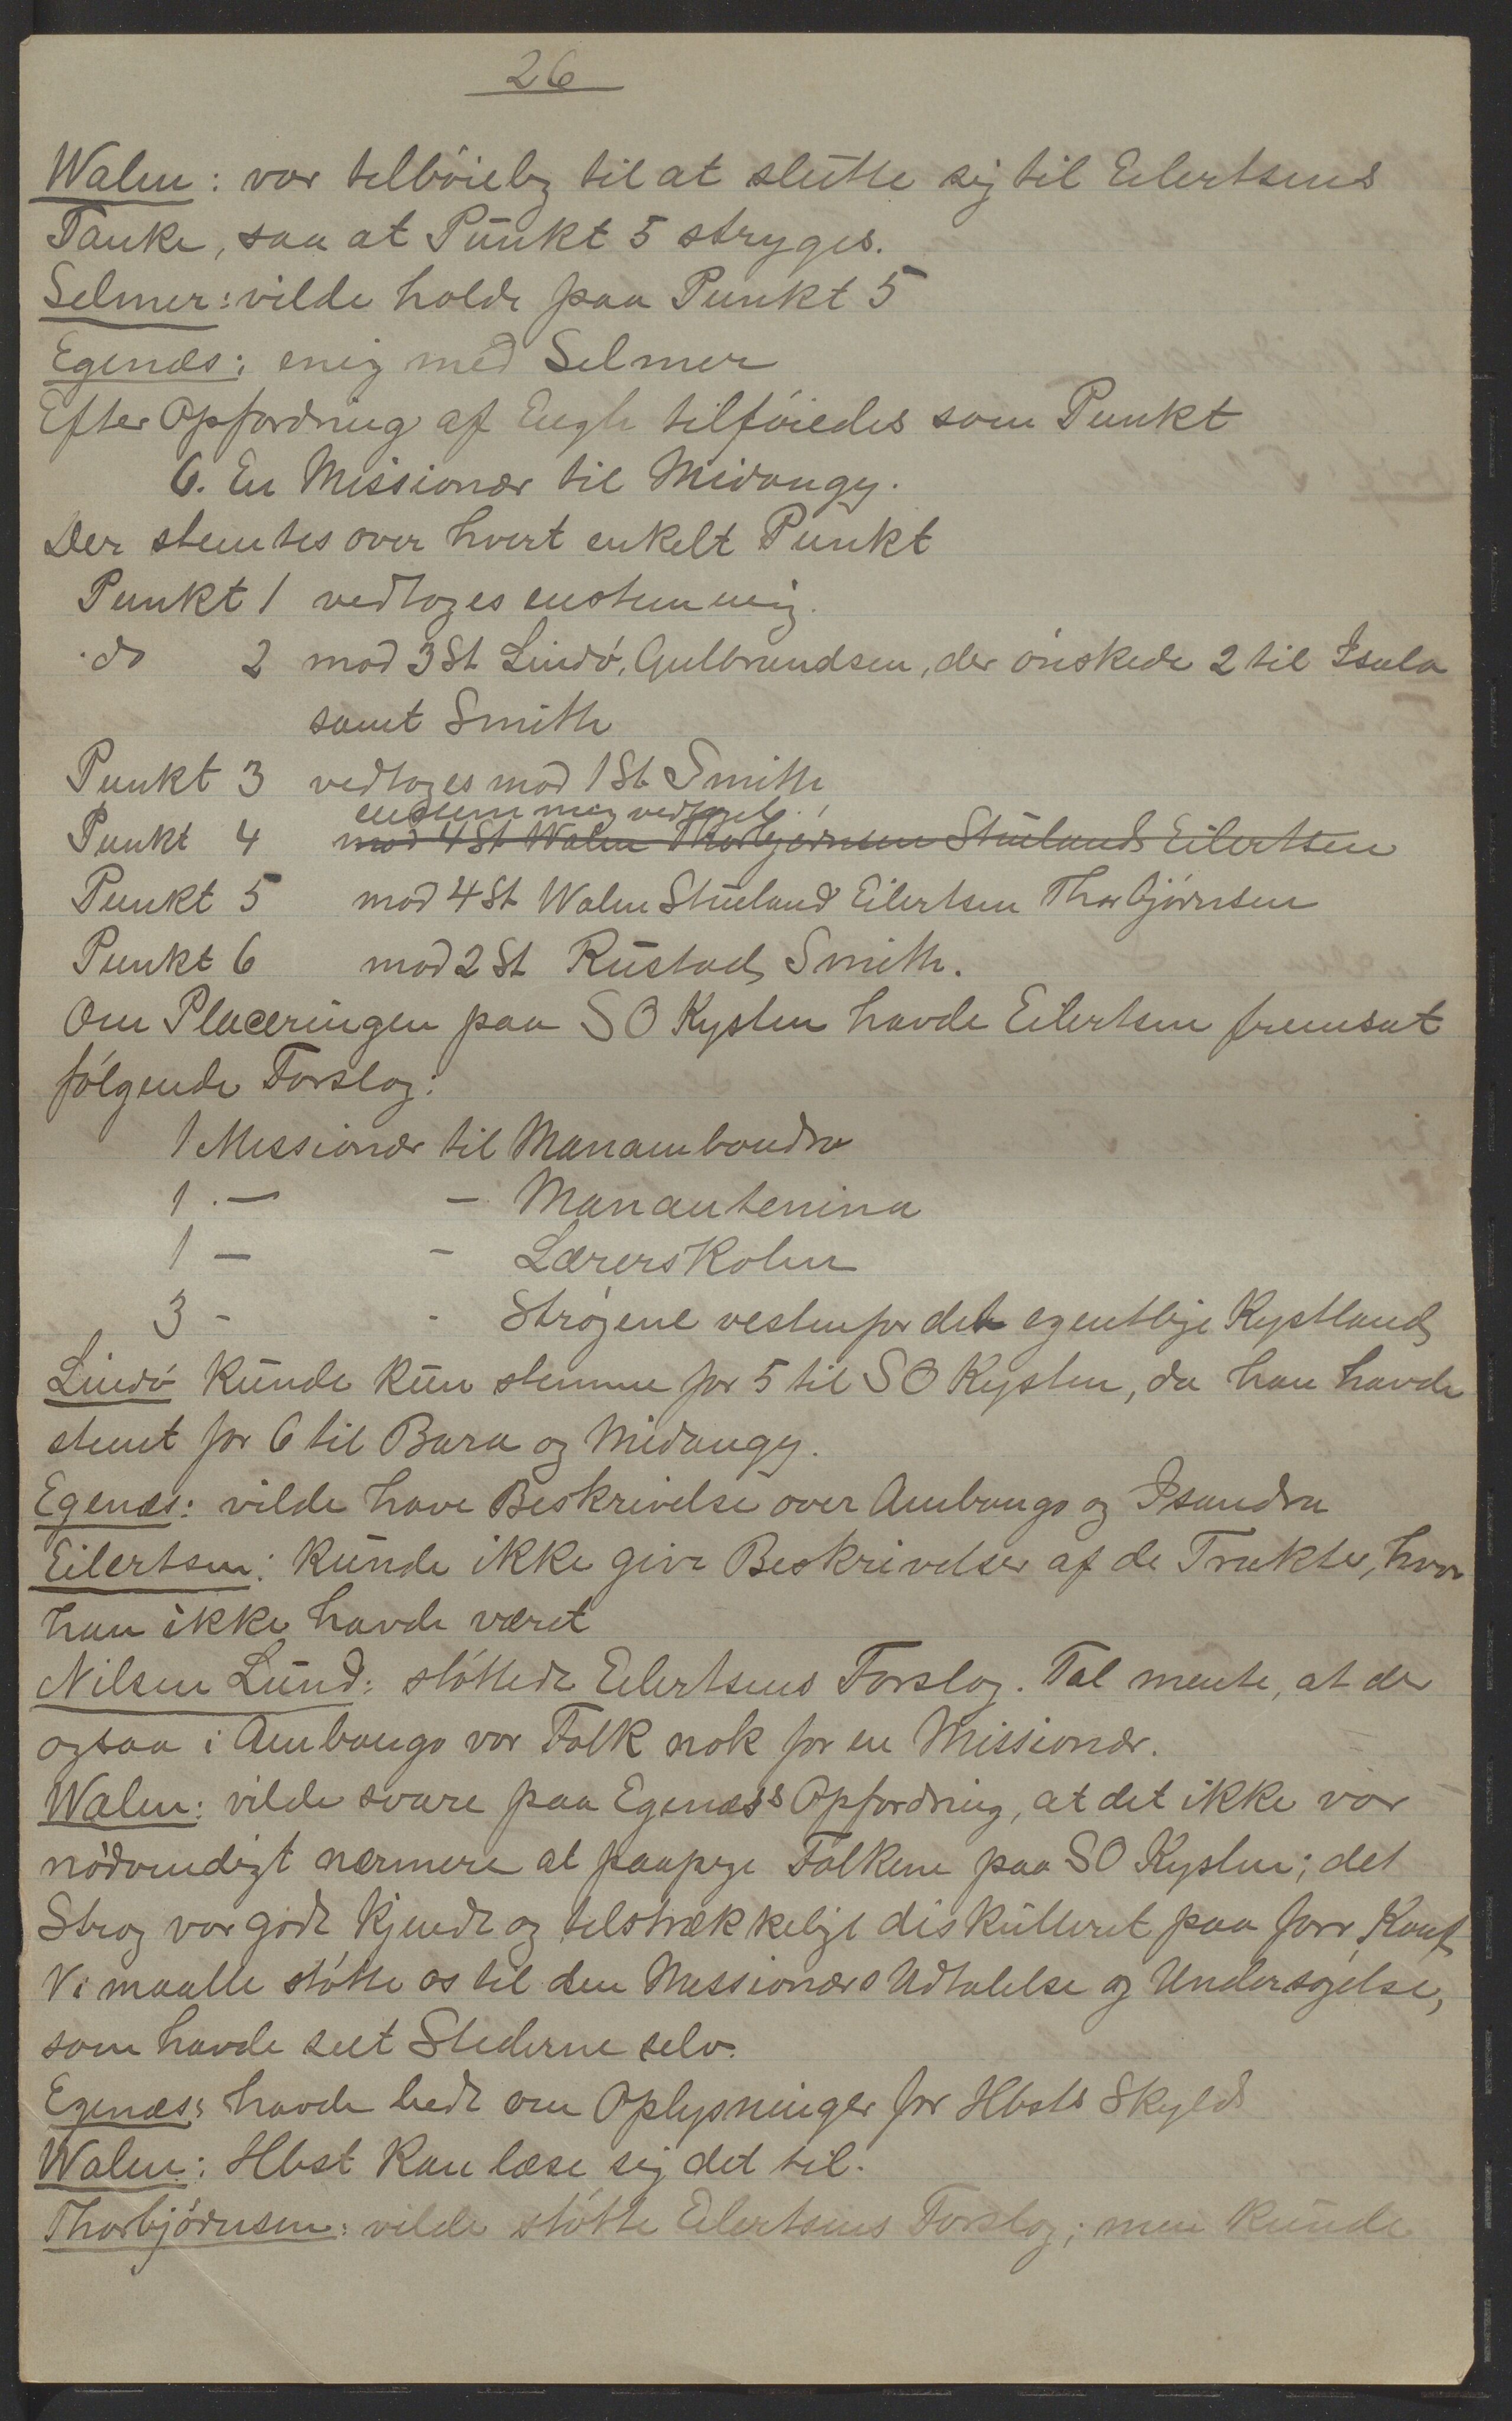 26
Walen: var tilbøielig til at slutte sig til Eilertsens
Tanke, saa at Punkt 5 stryges.
Selmer: vilde holde paa Punkt 5
Egenæs: enig med Selmer
Efter Opfordring af Engh tilføiedes som Punkt
6. En Missionær til Midongy.
Der stemtes over hvert enkelt Punkt
Punkt 1 vedtoges enstemmig.
do 2 mod 3 St Lindø, Gulbrandsen, der ønskede 2 til Isalo
samt Smith
Punkt 3 vedtoges mod 1 St. Smith
enstemmig vedtaget
Punkt 4 mod 4 St Walen Thorbjørnsen Stueland Eilertsen
Punkt 5 mod 4 St Walen Stueland Eilertsen Thorbjørnsen
Punkt 6 mod 2 St Rustad, Smith.
Om Placeringen paa SO Kysten havde Eilertsen fremsat
følgende Forslag:
1 Missionær til Manambondro
1 — — Manantenina
1 — - Lærerskolen
3 - - Strøgene vestenfor det egentlige Kystland
Lindø kunde kun stemme for 5 til SO Kysten, da han havde
stemt for 6 til Bara og Midongy.
Egenæs: vilde have Beskrivelse over Ambongo og Isandra
Eilertsen: kunde ikke give Beskrivelser af de Trakter, hvor
han ikke havde været
Nilsen Lund: støttede Eilertsens Forslag. Tal mente, at der
ogsaa i Ambongo var Folk nok for en Missionær.
Walen: vilde svare paa Egenæs's Opfordring, at det ikke var
nødvendigt nærmere at paapege Folkene paa SO Kysten; det
Strøg var godt kjendt og tilstrækkeligt diskutteret paa forr. Konf.
Vi maatte støtte os til den Missionærs Udtalelse og Undersøgelse,
som havde seet Stederne selv.
Egenæs: havde bedt om Oplysninger for Hbsts Skyld
Walen: Hbst kan læse sig det til.
Thorbjørnsen: vilde støtte Eilertsens Forslag; men kunde